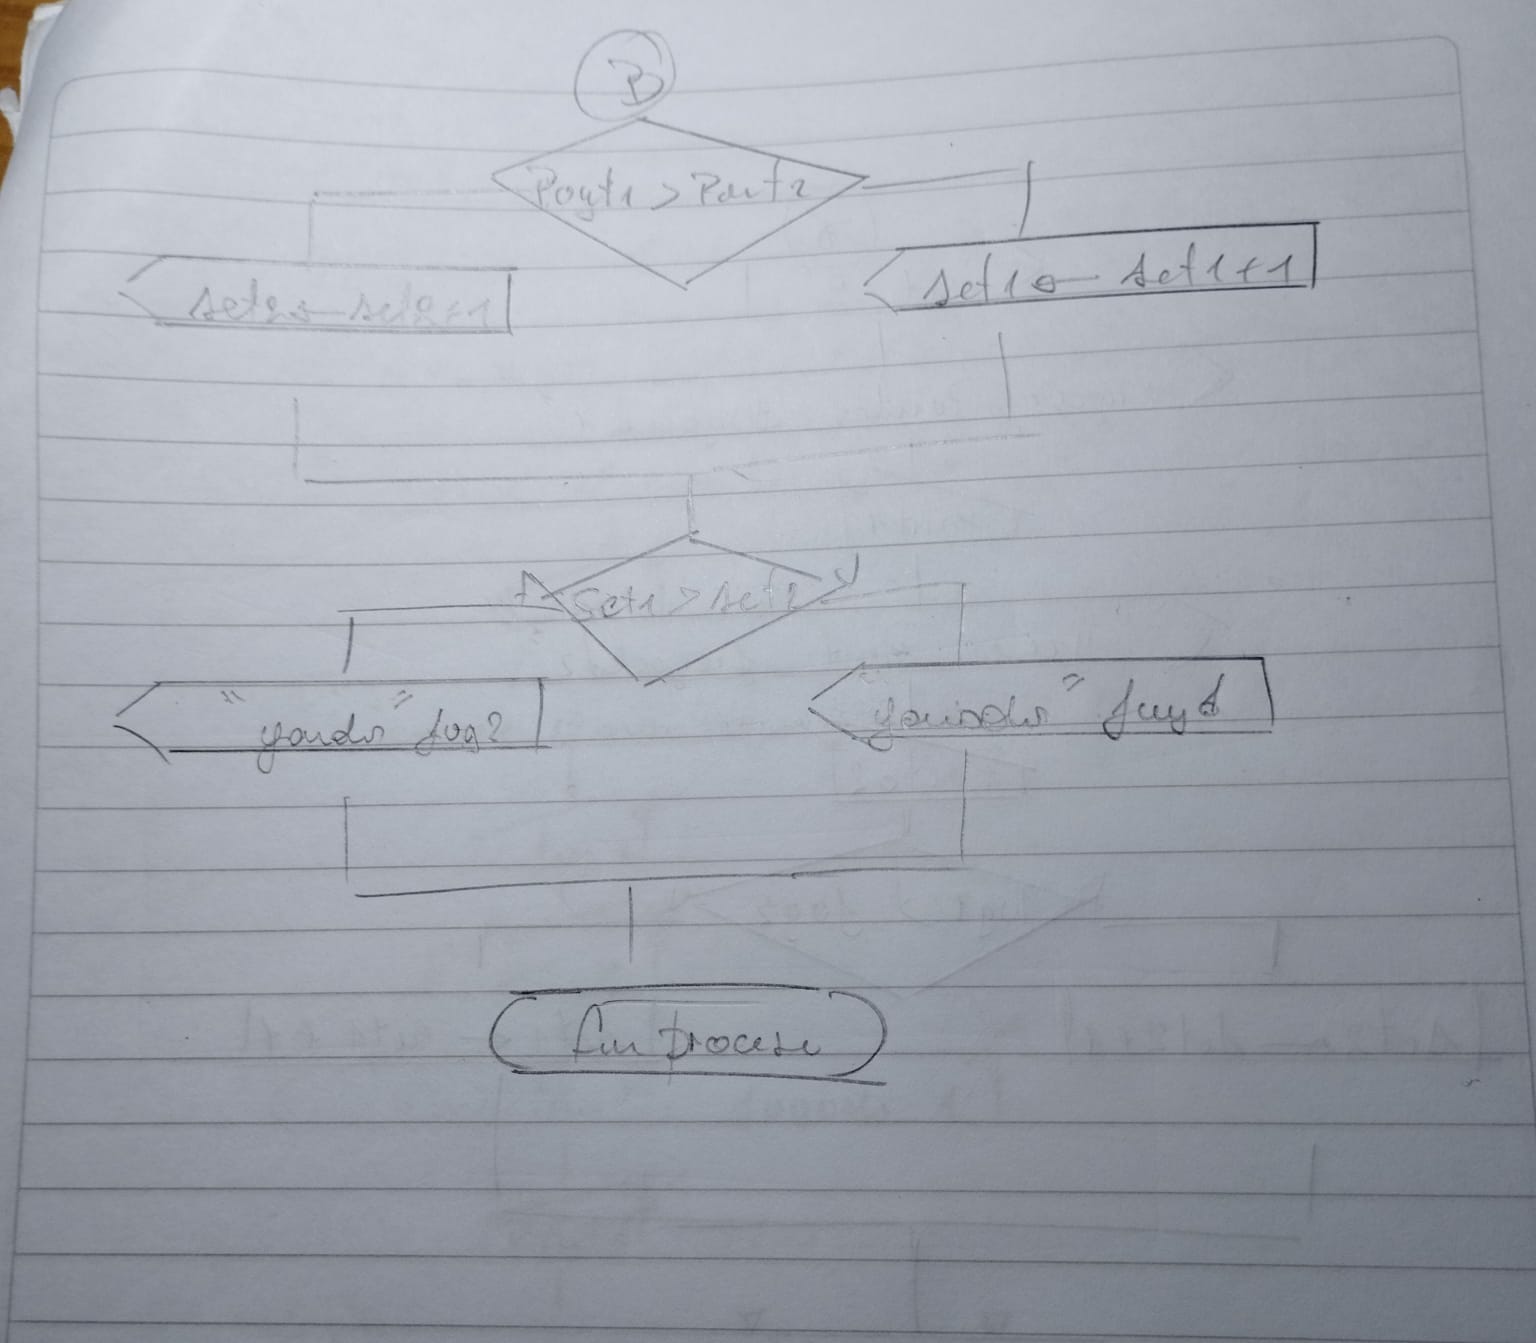 B
Pogt1 > Pont2
set2 ← set2+1
set1 ← set1+1
Set1 > set2
"ganador" Jug2
ganador" Jug1
fin proceso